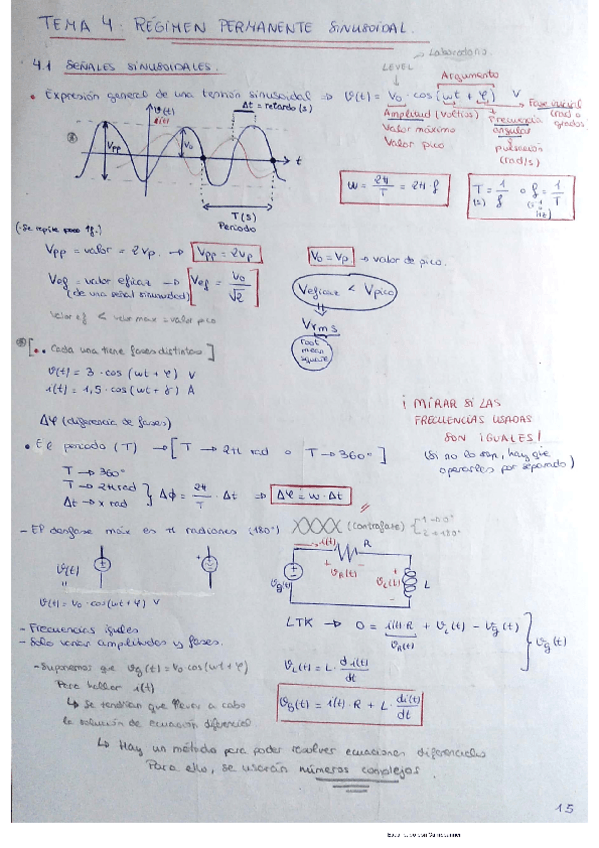 TEMA 4. RÉGIMEN PERMANENTE SINUSOIDAL.
4.1 SEÑALES SINUSOIDALES.
→ Laboratorio
LEVEL
Argumento
• Expresión general de una tensión sinusoidal ⇒ v(t) = V₀ · cos(ωt + φ) V
Fase inicial
(rad o grados)
Amplitud (voltios)
Valor máximo
Valor pico
Frecuencia angular
pulsación
(rad/s)
v(t)
i(t)
Δt = retardo (s)
Vpp
V₀
t
T(s)
Periodo
ω = 2π/T = 2π f
T = 1/f o f = 1/T
(s)
(·Se repite
Vpp = valor = 2Vp. → Vpp = 2Vp
V₀ = Vp. → valor de pico.
Vef = valor eficaz → Vef = V₀/√2
(de una señal sinusoidal)
Veficaz < Vpico
valor ef < valor max = valor pico
Vrms
root mean square
[•• Cada una tiene fases distintas]
v(t) = 3 · cos (ωt + φ) V
i(t) = 1,5 · cos (ωt + γ) A
¡ MIRAR SI LAS
FRECUENCIAS USADAS
SON IGUALES!
(Si no lo son, hay que
operarlas por separado)
Δφ (diferencia de fases)
• El periodo (T) → [T → 2π rad o T → 360°]
T → 360°
T → 2π rad
Δt → x rad
} Δφ = 2π/T · Δt ⇒ Δφ = ω · Δt
- El desfase máx es π radianes (180°)
(contrafase) { 1 → 0°
2 → 180°
v(t)
+
v(t) = V₀ · cos(ωt + φ) V
i(t)
R
+
vR(t)
-
vg(t)
+
vL(t)
-
L
- Frecuencias iguales
- Solo varían amplitudes y fases.
LTK → 0 = i(t)·R + vL(t) - vg(t) } vg(t)
vR(t)
- Suponemos que vg(t) = V₀ cos(ωt + φ)
Para hallar i(t)
↳ Se tendrían que llevar a cabo
la solución de ecuación diferencial
vL(t) = L · di(t)/dt
vg(t) = i(t) · R + L · di(t)/dt
↳ Hay un método para poder resolver ecuaciones diferenciales
Para ello, se usarán números complejos.
15